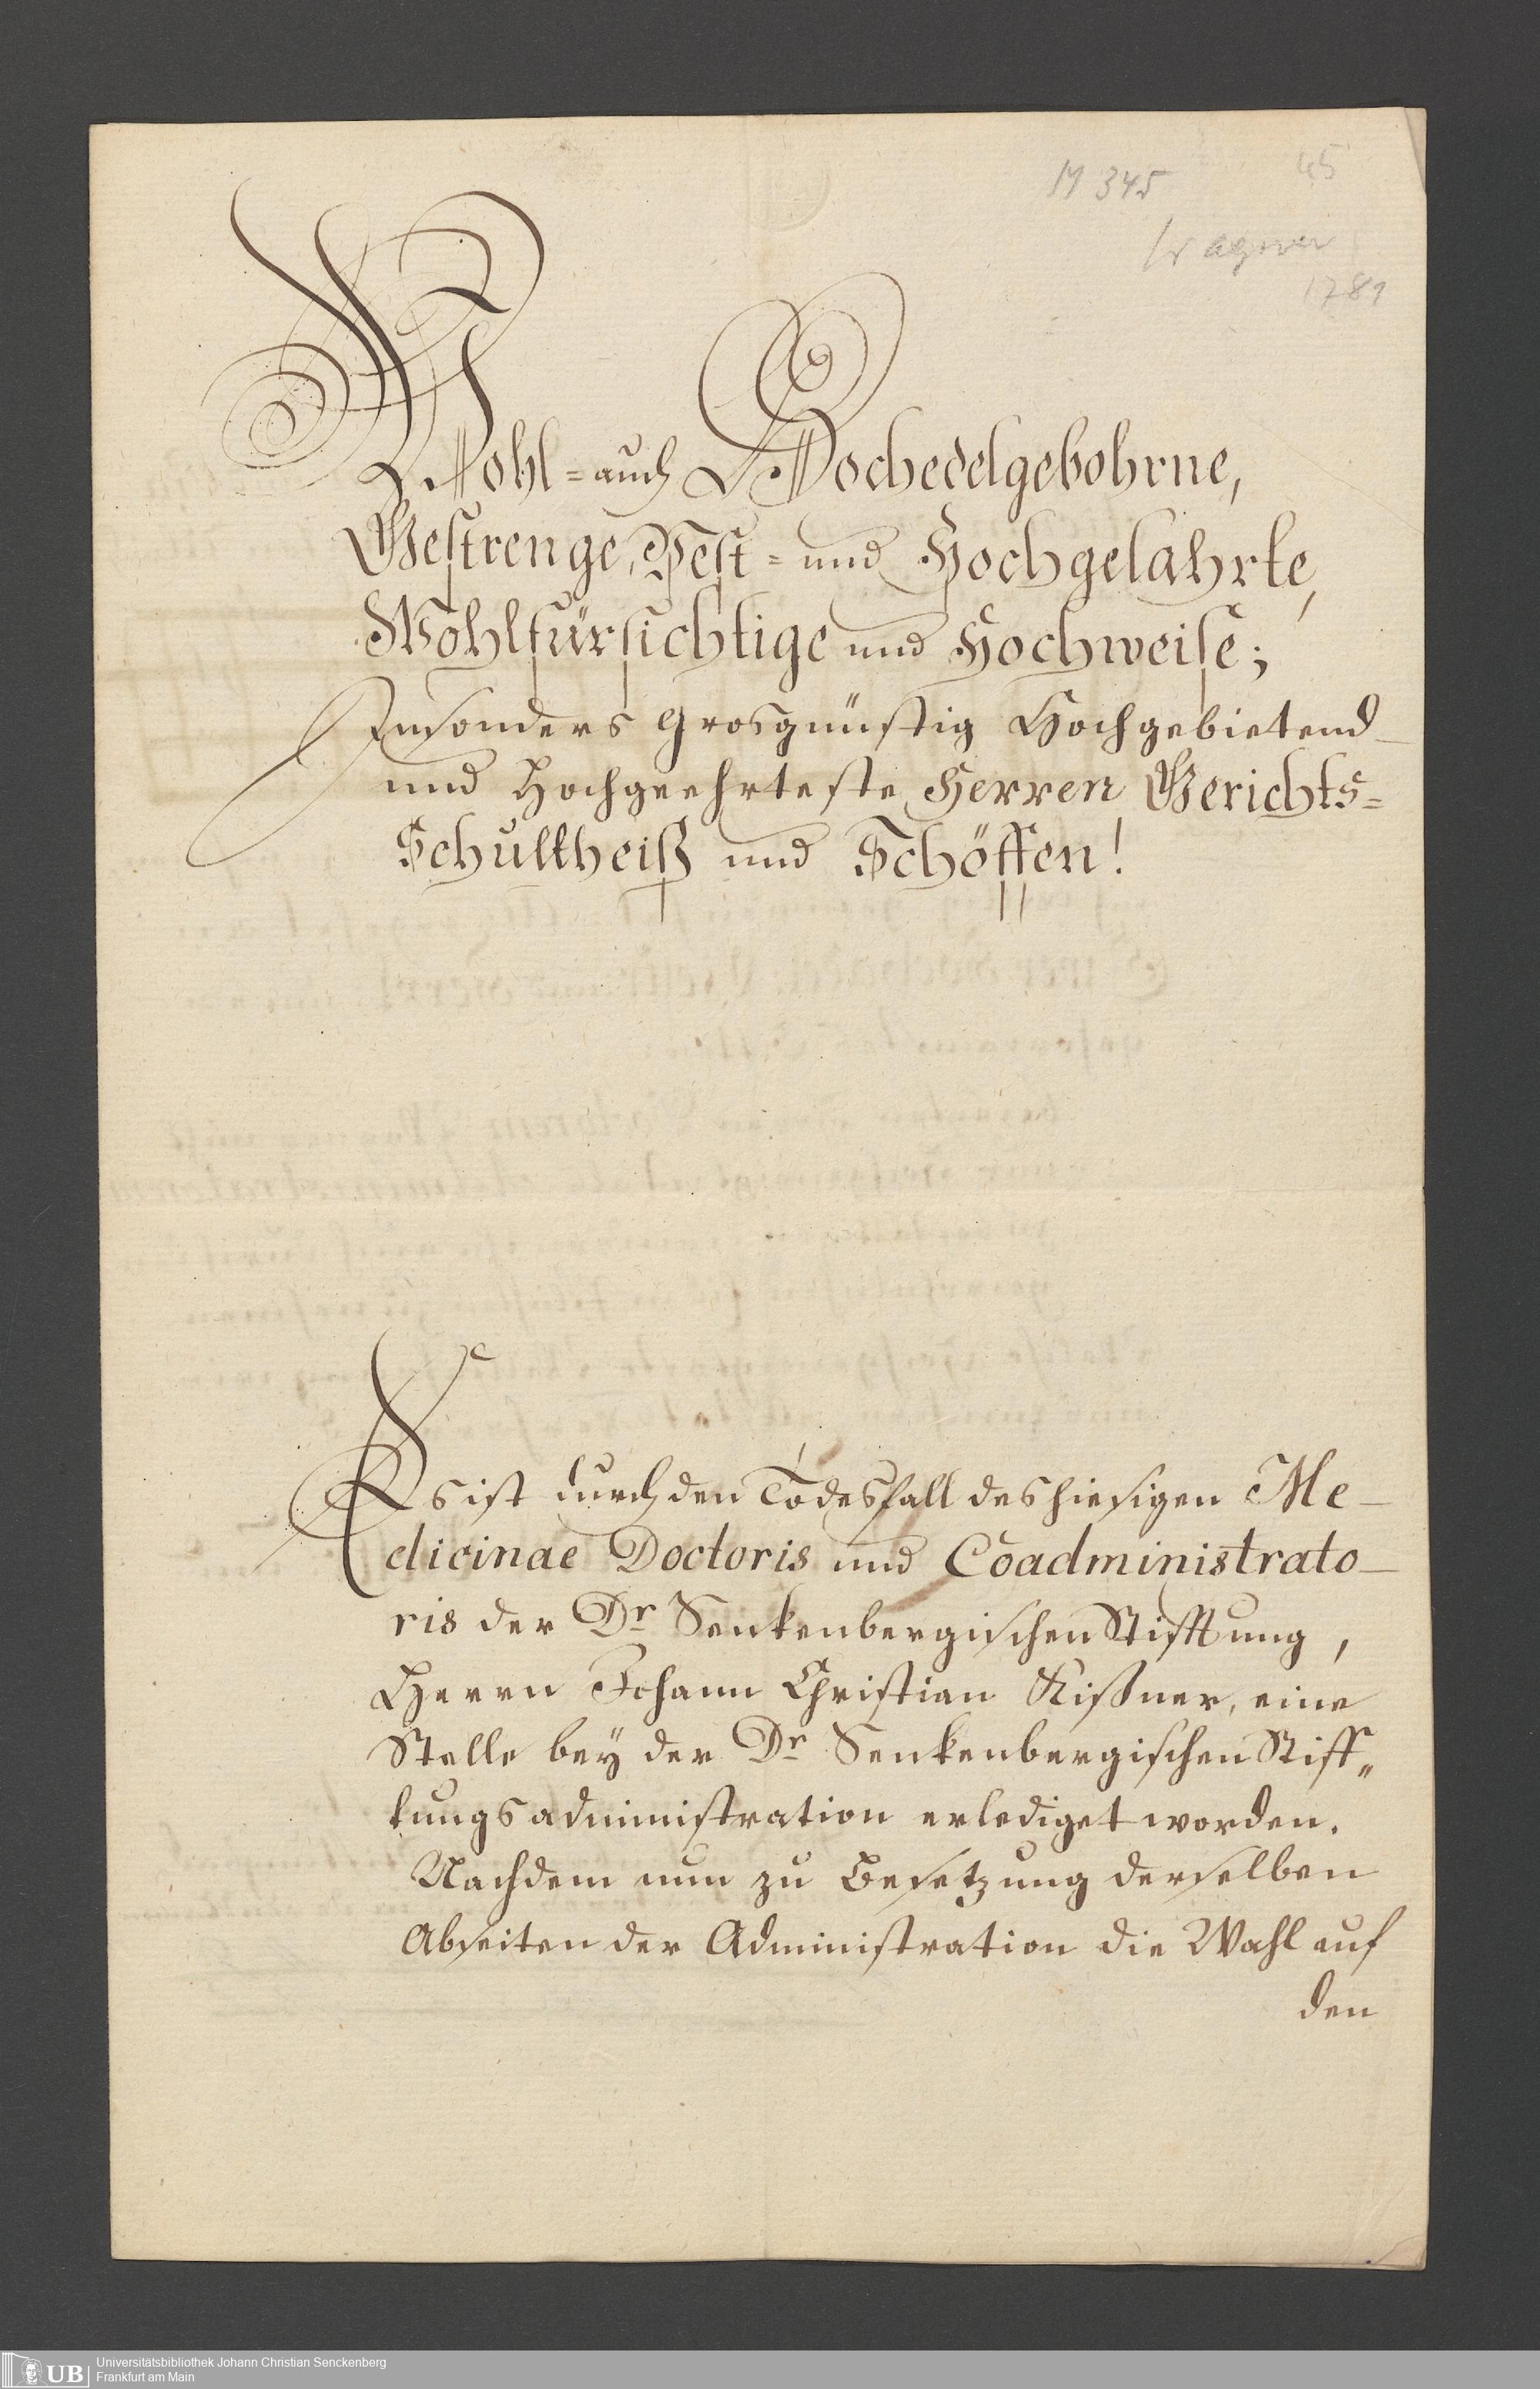 M 345
45
Wagner
1781
Wohl= auch Hochedelgebohrne,
Gestrenge, Vest= und Hochgelahrte,
Wohlfürsichtige und Hochweise;
Insonders Grosgünstig Hochgebietend-
und Hochgeehrteste Herren Gerichts=
Schultheiß und Schöffen!
Es ist durch den Todesfall des hiesigen Me-
dicinae Doctoris und Coadministrato-
ris der Dr Senkenbergischen Stifftung,
Herrn Johann Christian Kißner, eine
Stelle bey der Dr Senkenbergischen Stiff„
tungsadministration erlediget worden.
Nachdem nun zu Besetzung derselben
Abseiten der Administration die Wahl auf
den
UB
Universitätsbibliothek Johann Christian Senckenberg
Frankfurt am Main